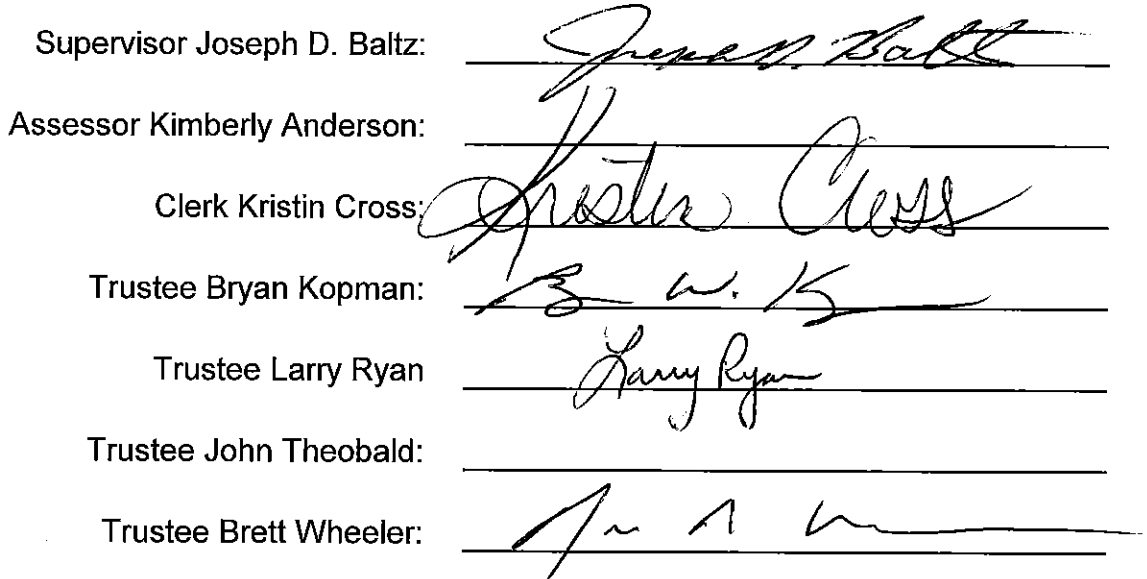 Supervisor Joseph D. Baltz: Joseph D. Baltz
Assessor Kimberly Anderson:
Clerk Kristin Cross: Kristin Cross
Trustee Bryan Kopman: B W. K
Trustee Larry Ryan Larry Ryan
Trustee John Theobald:
Trustee Brett Wheeler: